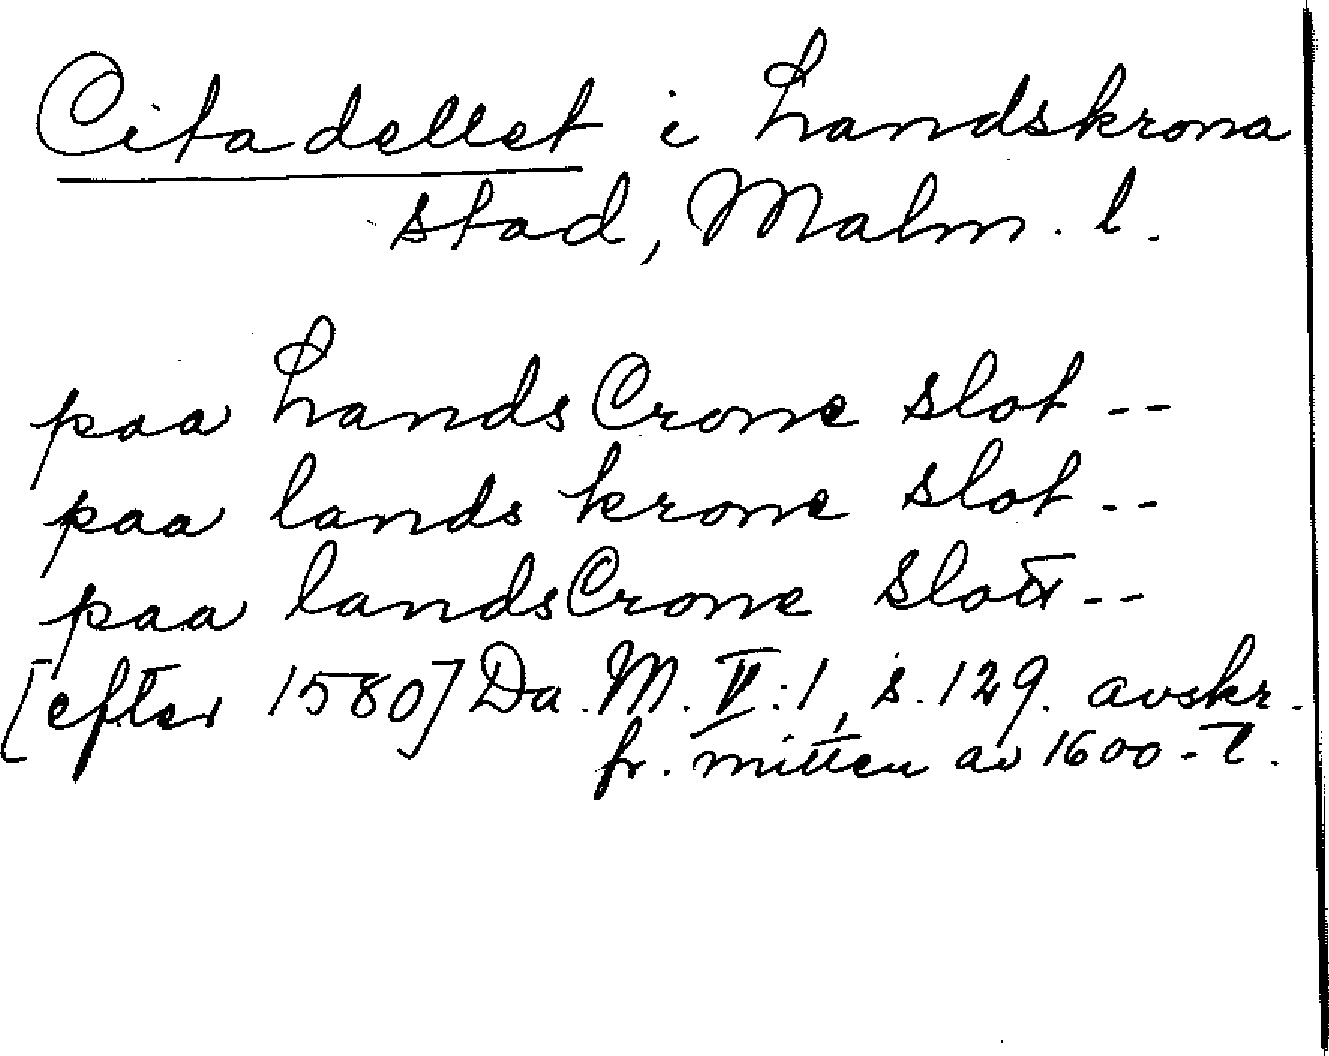 Citadellet i Landskrona
stad, Malm. l.
paa Lands Crone slot --
paa lands krone slot --
paa lands Crone slott --
[efter 1580] Da. M. V:1, s. 129. avskr.
fr. mitten av 1600-t.